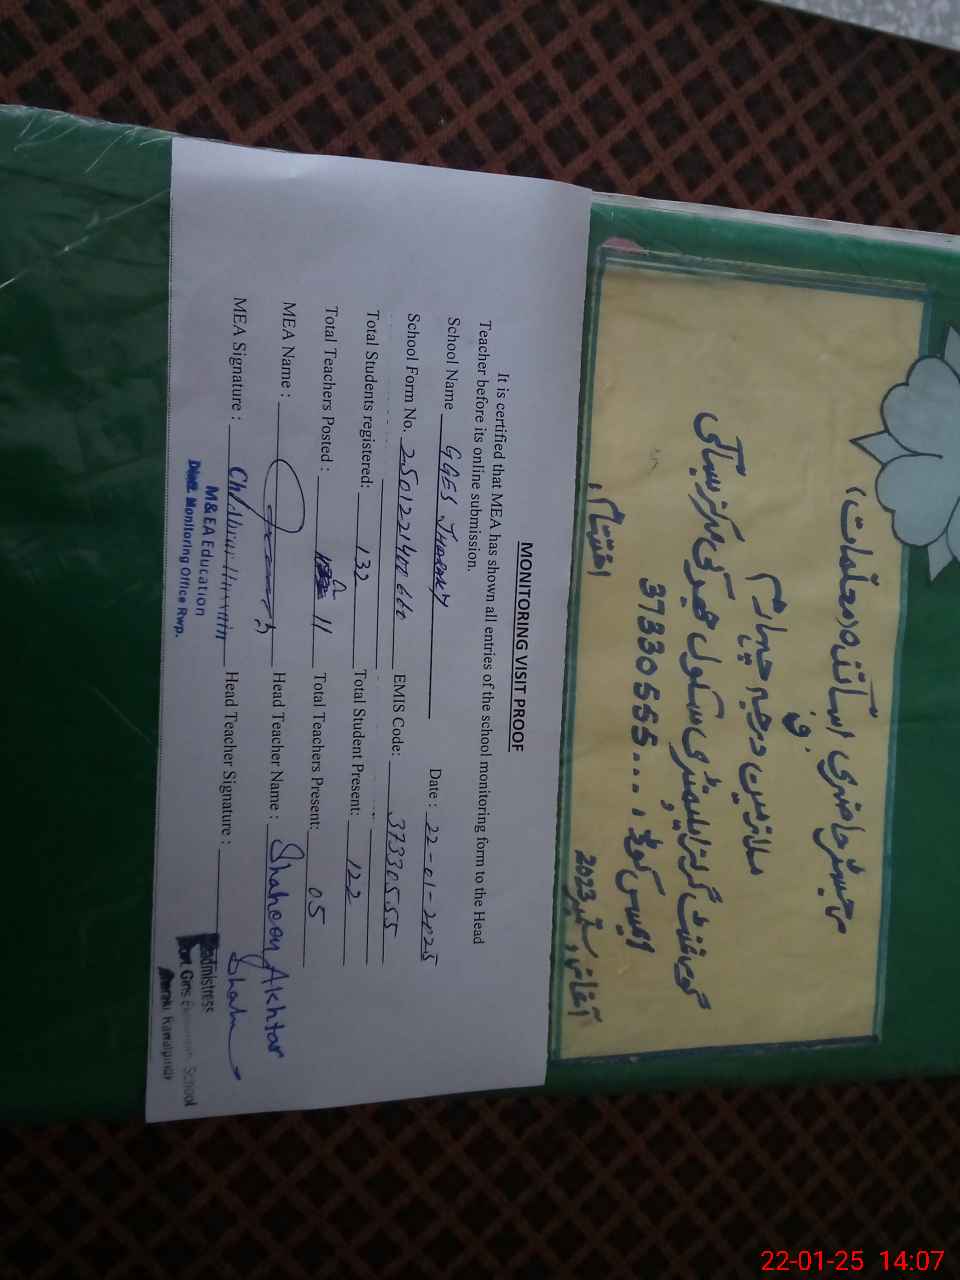 رجسٹر حاضری اساتذہ و معلمات،
و
ملازمین درجہ چہارم
گورنمنٹ گرلز ایلیمنٹری سکول
37330555
آغاز، ستمبر 2023 اختتام،
MONITORING VISIT PROOF
It is certified that MEA has shown all entries of the school monitoring form to the Head
Teacher before its online submission.
School Name GGES Date: 22-01-2025
School Form No. EMIS Code: 37330555
Total Students registered: 132 Total Student Present: 122
Total Teachers Posted: 11 Total Teachers Present: 05
MEA Name: Head Teacher Name: Shaheen Akhtar
MEA Signature: Head Teacher Signature:
M&EA Education
Distt. Monitoring Office Rwp.
Headmistress
Govt Girls Elementary School
Rawalpindi
22-01-25 14:07